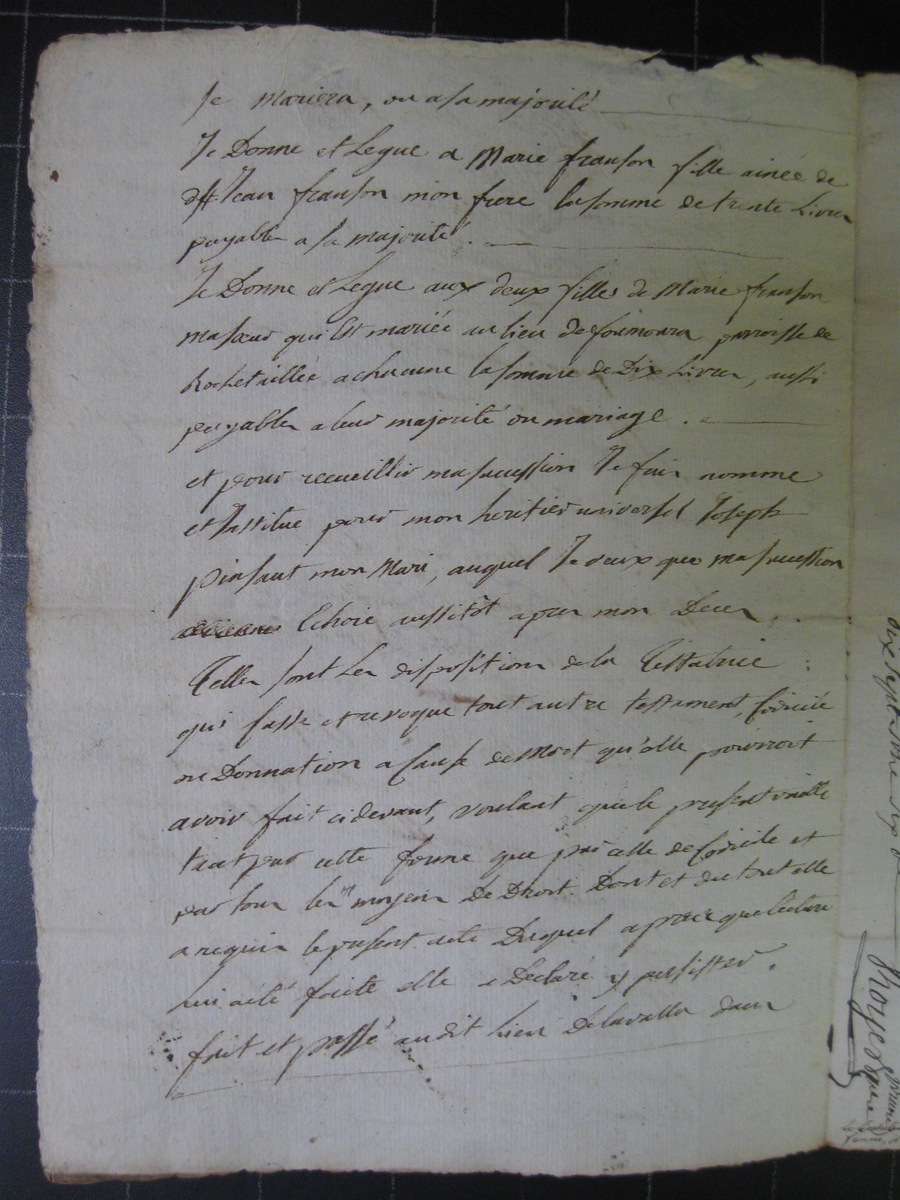 se mariera, ou a sa majorité
Je Donne et Legue a Marie franson fille ainée de
Jean franson mon frere la somme de trente Livres
payables a sa majorité.
Je Donne et Legue aux deux filles de Marie franson
ma soeur qui Est mariée au lieu de parroisse de
Rochetaillée a chacune la somme de Dix Livres, aussi
payables a leur majorité ou mariage.
et pour recueillir ma succession Je fais nomme
et Institue pour mon heritier universel Joseph
pinsaut mon Mari, auquel Je veux que ma succession
Echoie aussitôt apres mon Deces.
Telles sont Les dispositions de la Testatrice
qui casse et revoque tout autre testament, Codicile
ou Donnation a Cause de Mort qu'elle pourroit
avoir fait cidevant, voulant que le present vaille
tant par cette forme que par celle de Codicile et
par tous les moyens De Droit. Dont et du tout elle
a requis le present acte Duquel apres que lecture
lui a eté faite elle a Declaré y persister.
fait et passé audit lieu Delavalla dans
dix sept